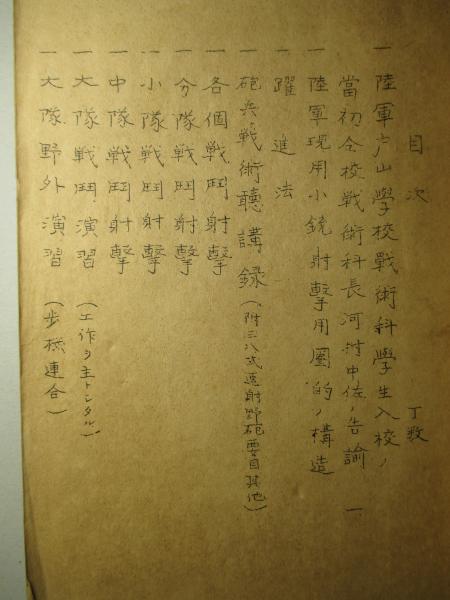 目次 丁数
一 陸軍戸山學校戰術科學生入校ノ
當初仝校戰術科長河村中佐ノ告諭 一
一 陸軍現用小銃射擊用圏的ノ構造
一 躍進法
一 砲兵戰術聽講録(附三八式速射野砲要目其他)
一 各個戰鬥射擊
一 分隊戰鬥射擊
一 小隊戰鬥射擊
一 中隊戰鬥射擊
一 大隊戰鬥演習(工作ヲ主トシタル)
一 大隊野外演習(步機連合)